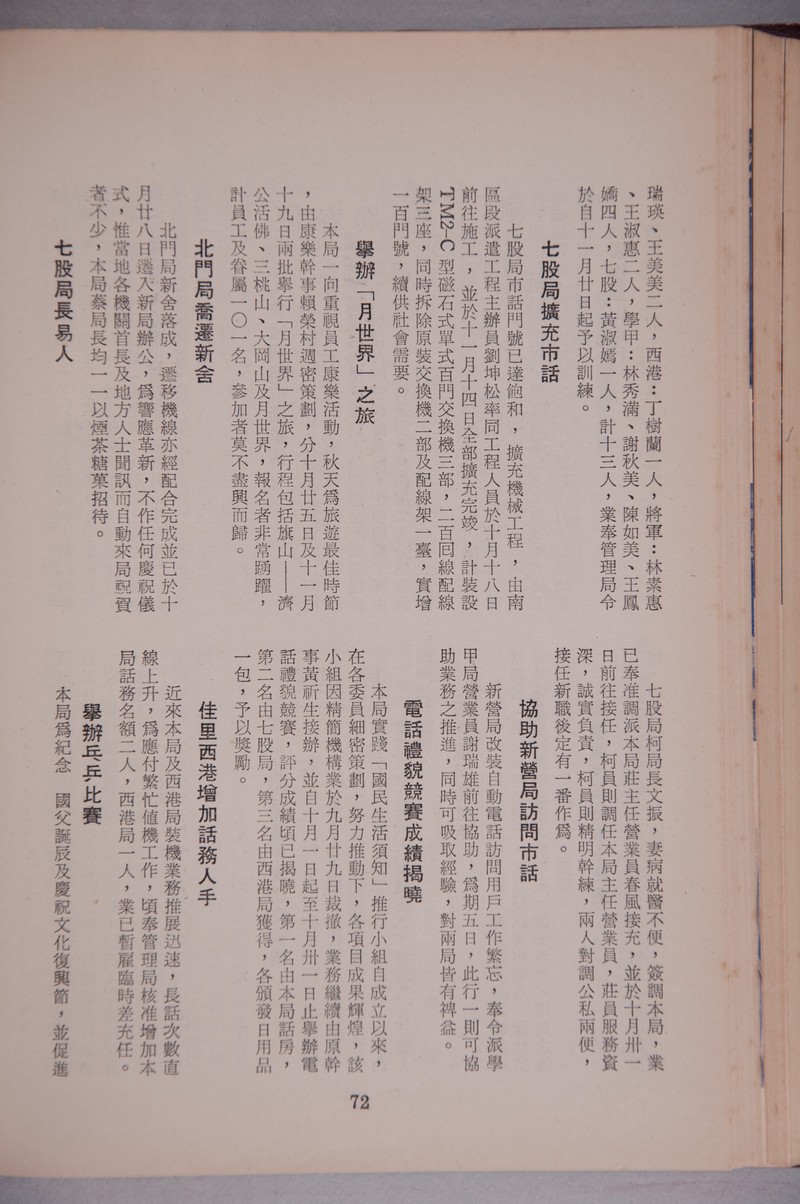 瑞瑛、王美美二人，西港：丁樹蘭一人，將軍：林素惠
、王淑惠二人，學甲：林秀滿、謝秋美、陳如美、王鳳
嬌四人，七股：黃淑嫣一人，計十三人，業奉管理局令
於自十一月廿日起予以訓練。
七股局擴充市話
七股局市話門號已達飽和，擴充機械工程，由南
區段派遣工程主辦員劉坤松率同工程人員於十月十八日
前往施工，並於十一月十四日全部擴充完竣，計裝設
TM2-C型磁石式單式百門交換機三部，二百回線配線
架三座，同時拆除原裝交換機二部及配線架一臺，實增
一百門號，續供社會需要。
舉辦「月世界」之旅
本局一向重視員工康樂活動，秋天爲旅遊最佳時節
，由康樂幹事賴榮村週密策劃，分十月廿五日及十一月
十九日兩批舉行「月世界」之旅，行程包括旗山——濟
公活佛、三桃山、大岡山及月世界，報名者非常踴躍，
計員工及眷屬一〇一名，參加者莫不盡興而歸。
北門局喬遷新舍
北門局新舍落成，遷移機線亦經配合完成並已於十
月廿八日遷入新局辦公，爲響應革新，不作任何慶祝儀
式，惟當地各機關首長及地方人士聞訊而自動來局祝賀
者不少，本局蔡局長均一一以煙茶糖菓招待。
七股局長易人
七股局柯局長文振，妻病就醫不便，簽調本局，業
已奉准調派本局莊主任營業員春風接充，並於十月卅一
日前往接任，柯員則調任本局主任營業員，莊員服務資
深，誠實負責，柯員則精明幹練，兩人對調公私兩便，
接任新職後定有一番作爲。
協助新營局訪問市話
新營局改裝自動電話訪問用戶工作繁忘，奉令派學
甲局營業員謝瑞雄前往協助，爲期五日，此行一則可協
助業務之推進，同時可吸取經驗，對兩局皆有裨益。
電話禮貌競賽成績揭曉
本局實踐「國民生活須知」推行小組自成立以來，
在各委員細密策劃，努力推動下，各項目成果輝煌，該
小組因精簡機構業於九月廿九日裁撤，業務繼續由原幹
事黃祈生接辦，並自十月一日起至十月卅一日止舉辦電
話禮貌競賽，評分成績頃已揭曉，第一名由本局話房，
第二名由七股局，第三名由西港局獲得，各頒發日用品
一包，予以獎勵。
佳里西港增加話務人手
近來本局及西港局裝機業務推展迅速，長話次數直
線上升，爲應付繁忙值機工作，頃奉管理局核准增加本
局話務名額二人，西港局一人，業已暫雇臨時差充任。
舉辦乒乓比賽
本局爲紀念　國父誕辰及慶祝文化復興節，並促進
72